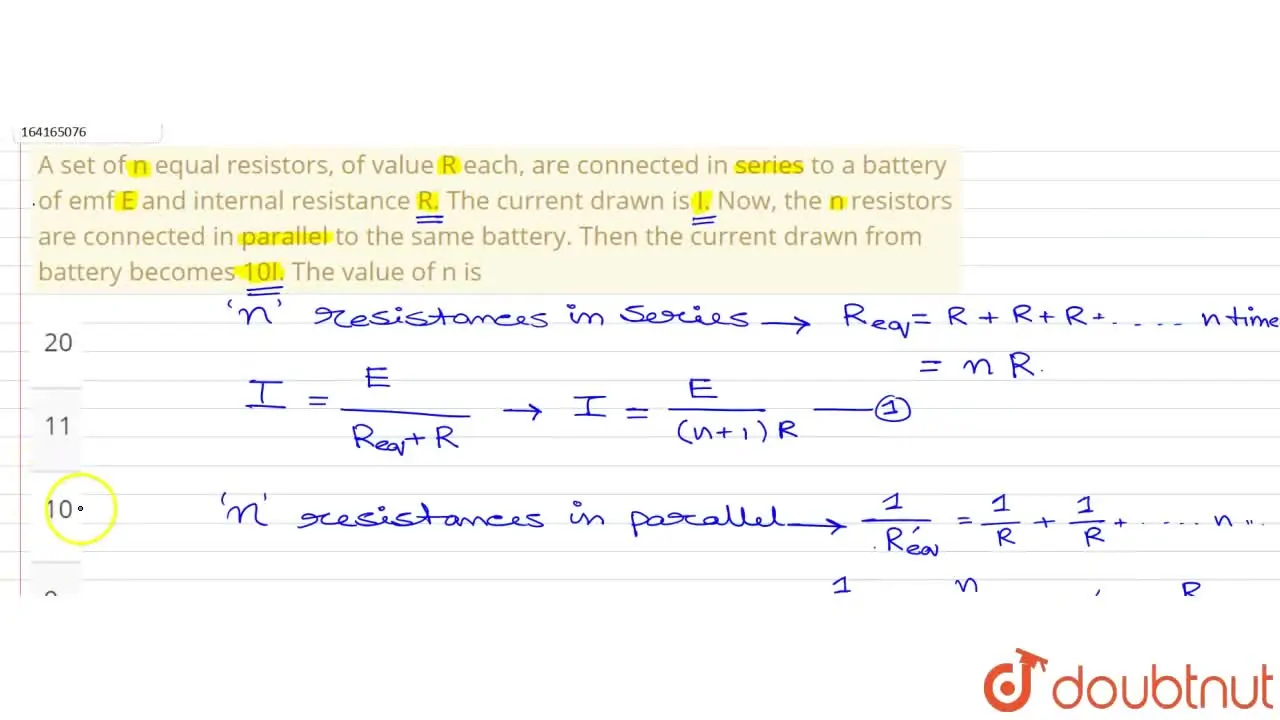 164165076
A set of n equal resistors, of value R each, are connected in series to a battery
of emf E and internal resistance R. The current drawn is I. Now, the n resistors
are connected in parallel to the same battery. Then the current drawn from
battery becomes 10I. The value of n is
'n' resistances in series → Req = R + R + R + ..... n time
= n R.
20
I = E / (Req + R) → I = E / ((n+1) R) — ①
11
10
'n' resistances in parallel → 1/R'eq = 1/R + 1/R + ..... n ..
1 n R
doubtnut